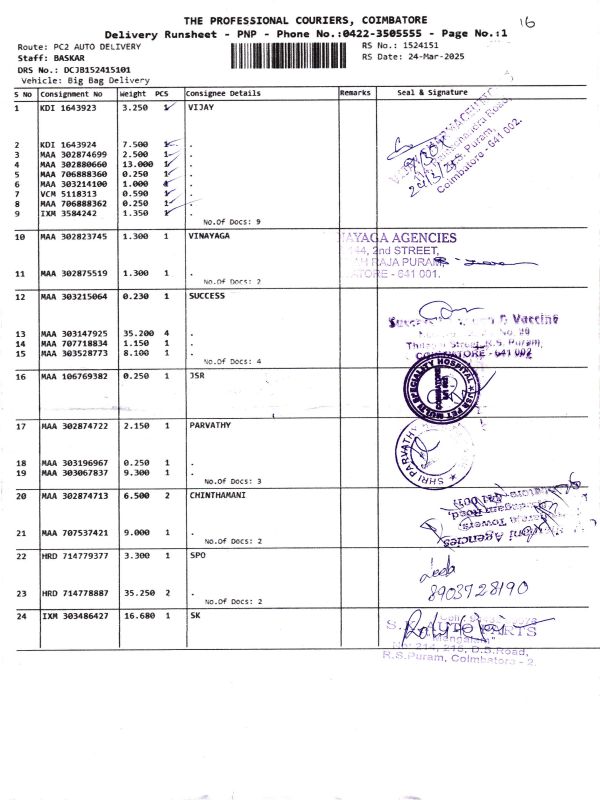 THE PROFESSIONAL COURIERS, COIMBATORE
16
Delivery Runsheet - PNP - Phone No.:0422-3505555 - Page No.:1
Route: PC2 AUTO DELIVERY
RS No.: 1524151
Staff: BASKAR
RS Date: 24-Mar-2025
DRS No.: DCJB152415101
Vehicle: Big Bag Delivery
S No Consignment No Weight PCS Consignee Details Remarks Seal & Signature
1 KDI 1643923 3.250 1 VIJAY
2 KDI 1643924 7.500 1 .
3 MAA 302874699 2.500 1 .
4 MAA 302880660 13.000 1 .
5 MAA 706888360 0.250 1 .
6 MAA 303214100 1.000 4 .
7 VCM 5118313 0.590 1 .
8 MAA 706888362 0.250 1 .
9 IXM 3584242 1.350 1 .
No.Of Docs: 9
Puram,
Coimbatore - 641 002.
10 MAA 302823745 1.300 1 VINAYAGA
AYAGA AGENCIES
44, 2nd STREET,
RAJA PURAM,
ATORE - 641 001.
11 MAA 302875519 1.300 1 .
No.Of Docs: 2
12 MAA 303215064 0.230 1 SUCCESS
Vaccine
No. 20
Street, R.S. Puram,
COIMBATORE - 641 002
13 MAA 303147925 35.200 4 .
14 MAA 707718834 1.150 1 .
15 MAA 303528773 8.100 1 .
No.Of Docs: 4
16 MAA 106769382 0.250 1 JSR
PET MULTI SPECIALITY HOSPITAL
17 MAA 302874722 2.150 1 PARVATHY
SHRI PARVATHY
18 MAA 303196967 0.250 1 .
19 MAA 303067837 9.300 1 .
No.Of Docs: 3
20 MAA 302874713 6.500 2 CHINTHAMANI
Agencies
Towers,
Road,
641 001
21 MAA 707537421 9.000 1 .
No.Of Docs: 2
22 HRD 714779377 3.300 1 SPO
8903728190
23 HRD 714778887 35.250 2 .
No.Of Docs: 2
24 IXM 303486427 16.680 1 SK
No: 214, 216, D.B.Road,
R.S.Puram, Coimbatore - 2.